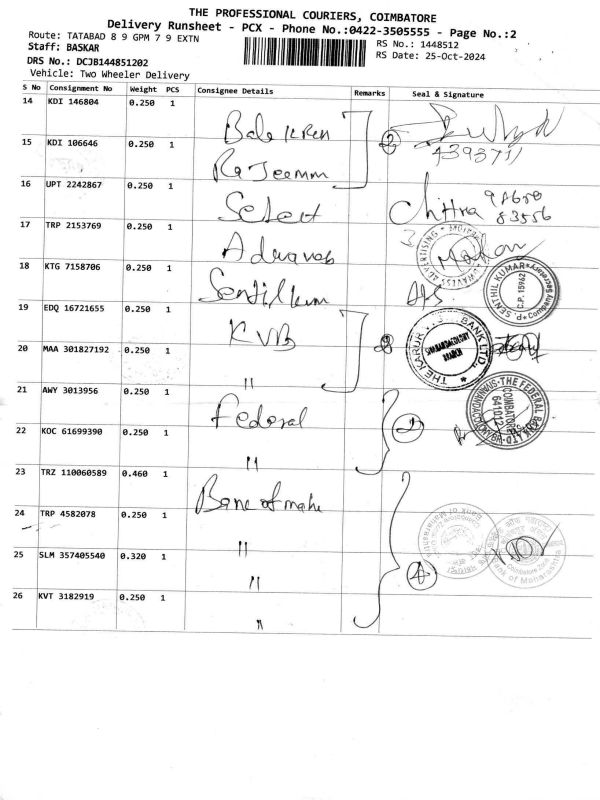 THE PROFESSIONAL COURIERS, COIMBATORE
Delivery Runsheet - PCX - Phone No.:0422-3505555 - Page No.:2
Route: TATABAD 8 9 GPM 7 9 EXTN
RS No.: 1448512
Staff: BASKAR
RS Date: 25-Oct-2024
DRS No.: DCJB144851202
Vehicle: Two Wheeler Delivery
S No Consignment No Weight PCS Consignee Details Remarks Seal & Signature
14 KDI 146804 0.250 1
15 KDI 106646 0.250 1 2
16 UPT 2242867 0.250 1 Select Chitra
17 TRP 2153769 0.250 1
18 KTG 7158706 0.250 1
SENTHIL KUMAR C.P. 15962 Company Secretary
19 EDQ 16721655 0.250 1 KVB
THE KARUR BANK LTD. BRANCH
20 MAA 301827192 0.250 1 "
21 AWY 3013956 0.250 1 Federal 2
THE FEDERAL BANK LTD. COIMBATORE 641012
22 KOC 61699390 0.250 1 "
23 TRZ 110060589 0.460 1
24 TRP 4582078 0.250 1 "
Bank of Maharashtra Coimbatore Zone
25 SLM 357405540 0.320 1 " 4
26 KVT 3182919 0.250 1 "